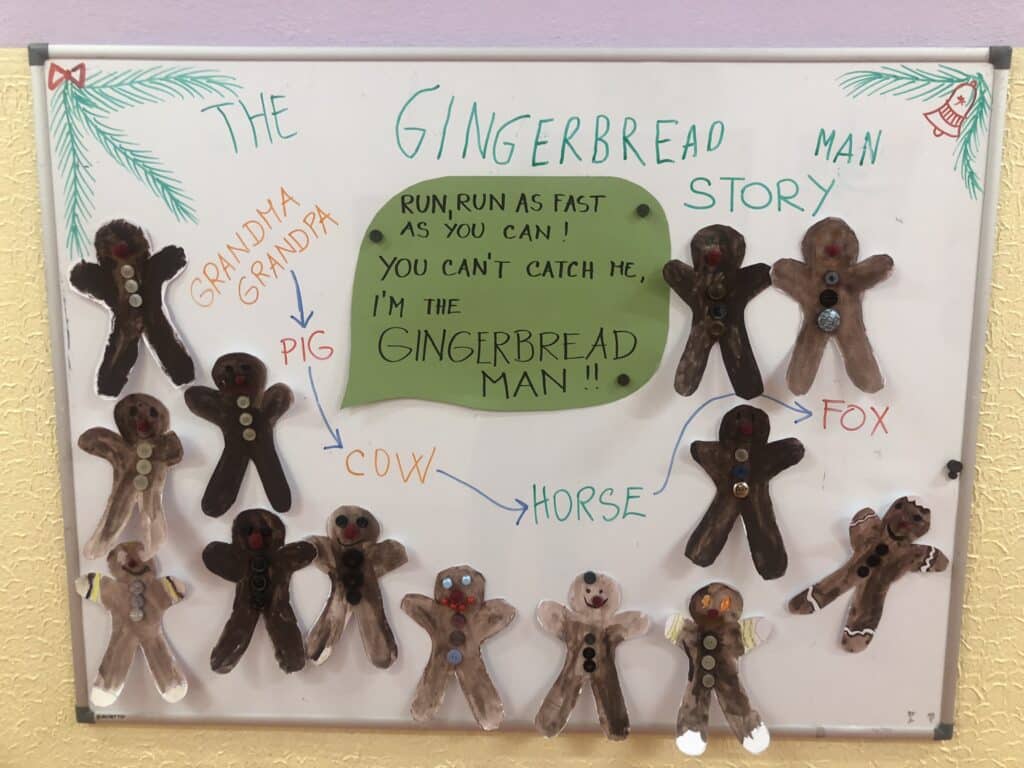 THE GINGERBREAD MAN
STORY
RUN, RUN AS FAST
AS YOU CAN!
YOU CAN'T CATCH ME,
I'M THE
GINGERBREAD
MAN!!
GRANDMA
GRANDPA
PIG
COW
HORSE
FOX